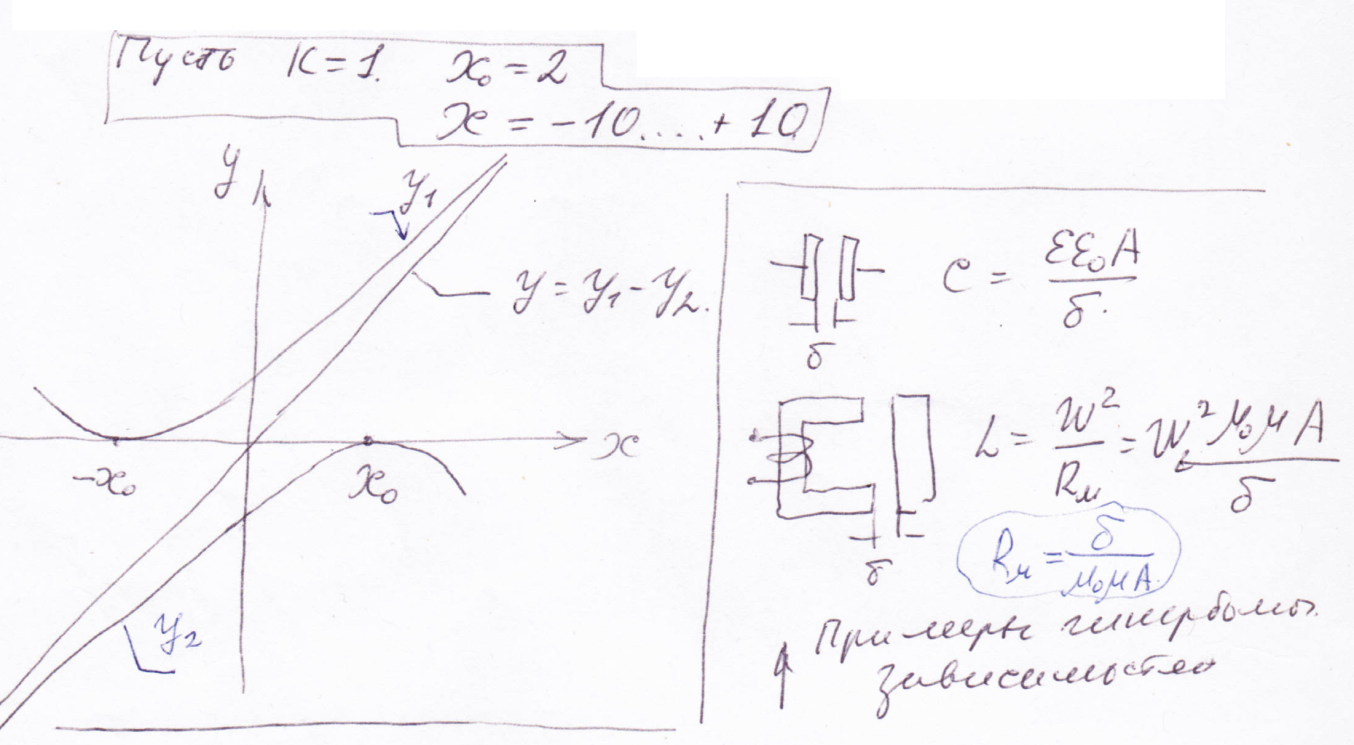 Пусть K=1. x₀=2
x = -10....+10
y
y₁
y = y₁ - y₂.
x
-x₀
x₀
y₂
C = εε₀A / δ.
δ
L = W² / Rм = W²μ₀μA / δ
Rм = δ / μ₀μA.
δ
Примеры гипербол.
зависимостей